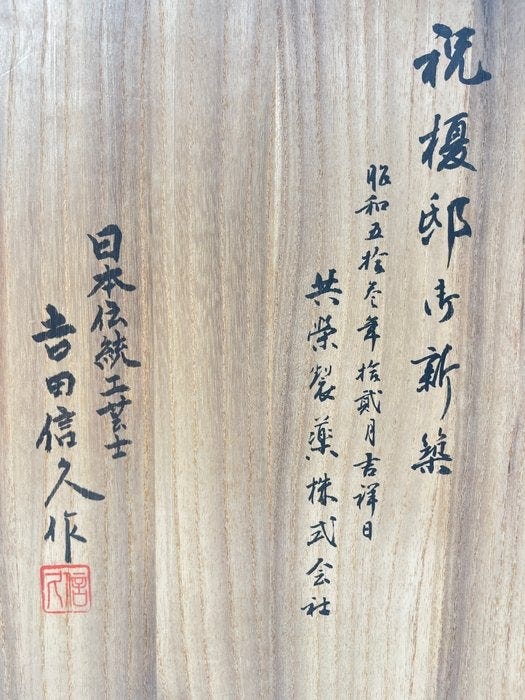 祝榎邸御新築
昭和五拾叁年拾貳月吉祥日
共榮製薬株式会社
日本伝統工芸士
吉田信久作
信久